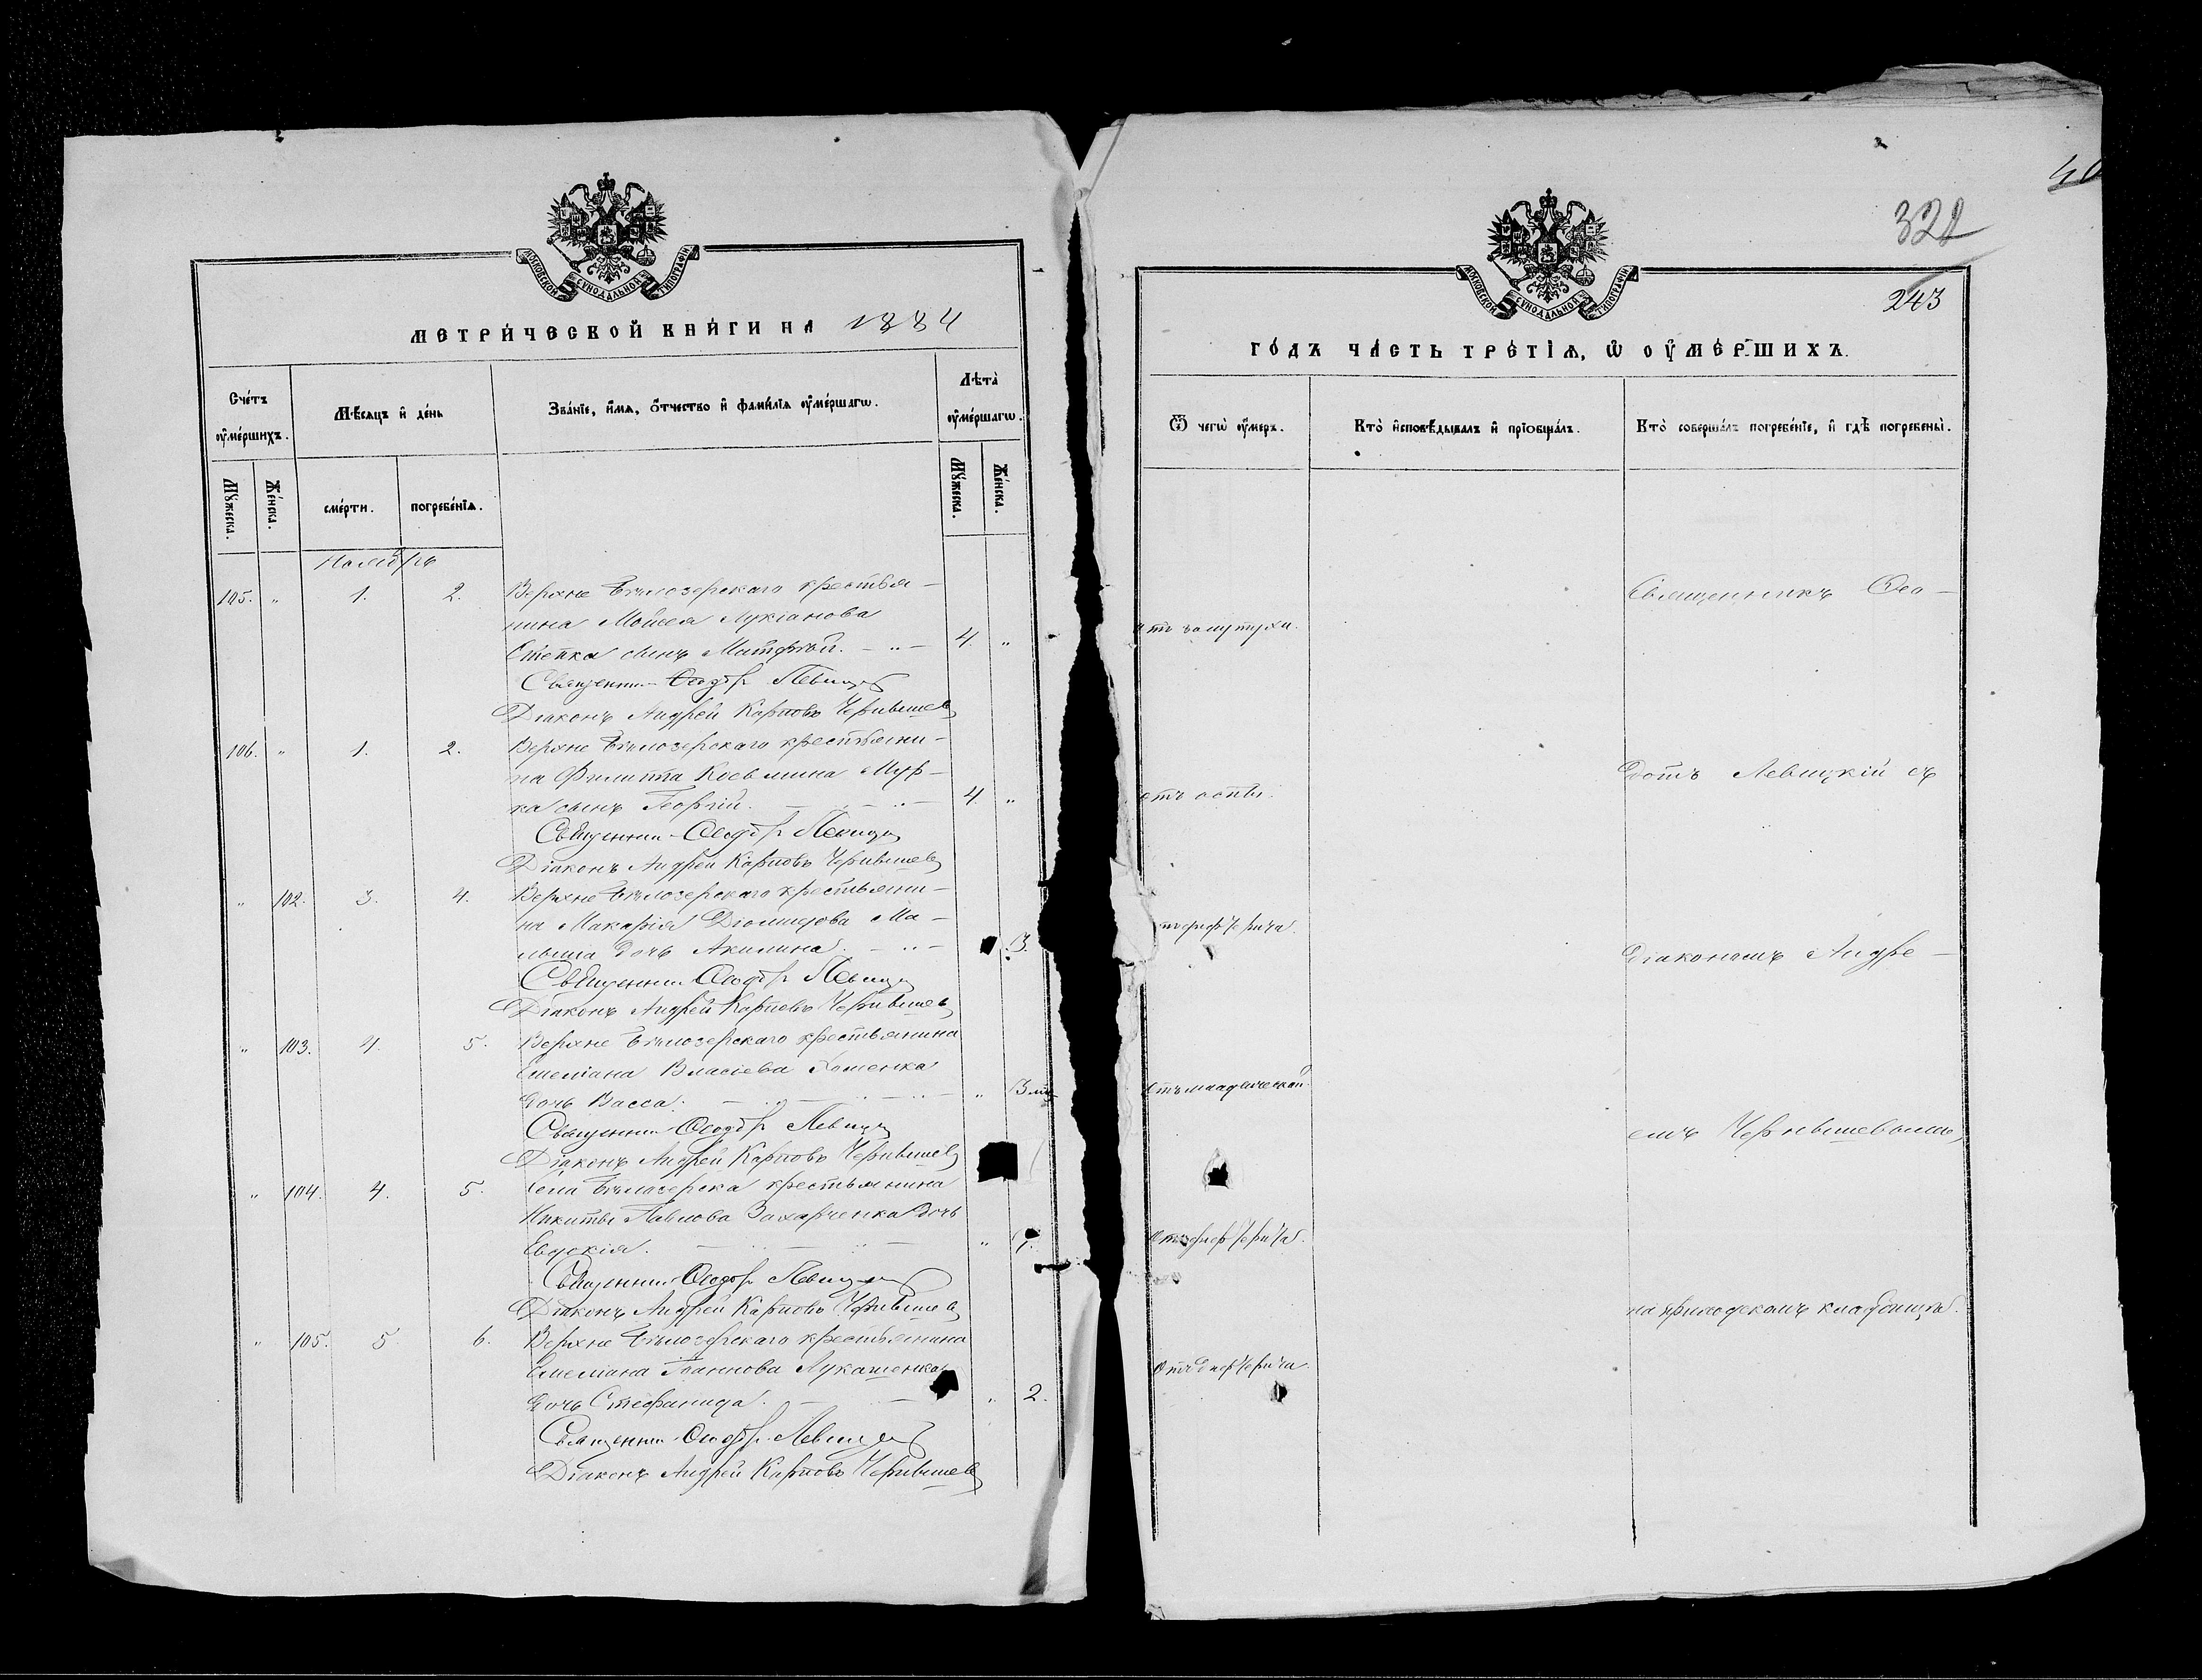 МОСКОВСКОЙ СѴНОДАЛЬНОЙ ТИПОГРАФІИ
МЕТРИ́ЧЕСКОЙ КНИ́ГИ НА 1884
Сче́тъ ᲂу҆ме́ршихъ.
Мѣ́сяцъ и҆ де́нь
Зва́нїе, и҆́мѧ, ѻ҆́тчество и҆ фами́лїѧ ᲂу҆ме́ршагѡ.
Лѣта̀ ᲂу҆ме́ршагѡ.
Мꙋ́жеска.
Же́нска.
сме́рти.
погребе́нїѧ.
Мꙋ́жеска.
Же́нска.
Ноябрь
105. " 1. 2. Верхне Бѣлозерскаго крестья-
нина Моисея Лукіанова
Степка сынъ Матфей. - " - 4. "
Священникъ Ѳеодоръ Левицкій
Діаконъ Андрей Карповъ Чернышевъ
106. " 1. 2. Верхне Бѣлозерскаго крестьяни-
на Филиппа Косьмина Мур-
ка сынъ Георгій. - " - " - 4. "
Священникъ Ѳеодоръ Левицкій
Діаконъ Андрей Карповъ Чернышевъ
" 102. 3. 4. Верхне Бѣлозерскаго крестьяни-
на Макарія Діомидова Ма-
лыша дочь Акилина. - " - 3.
Священникъ Ѳеодоръ Левицкій
Діаконъ Андрей Карповъ Чернышевъ
" 103. 4. 5. Верхне Бѣлозерскаго крестьянина
Емеліана Власіева
дочь Васса. - " - " - " 3 мѣс
Священникъ Ѳеодоръ Левицкій
Діаконъ Андрей Карповъ Чернышевъ
" 104. 4. 5. Села Бѣлозерска крестьянина
Никиты Павлова Захарченка дочь
Евдокія. - " - " - "
Священникъ Ѳеодоръ Левицкій
Діаконъ Андрей Карповъ Чернышевъ
" 105. 5. 6. Верхне Бѣлозерскаго крестьянина
Емеліана Іоаннова Лукашенка
дочь Стефанида. - " - " 2.
Священникъ Ѳеодоръ Левицкій
Діаконъ Андрей Карповъ Чернышевъ
322
243
МОСКОВСКОЙ СѴНОДАЛЬНОЙ ТИПОГРАФІИ
ГО́ДЪ ЧА́СТЬ ТРЕ́ТІѦ, Ѡ҆ ОУ҆МЕ́РШИХЪ.
Ѿ чегѡ̀ ᲂу҆́меръ.
Кто̀ и҆сповѣ́дывалъ и҆ прїобща́лъ.
Кто̀ соверша́лъ погребе́нїе, и҆ гдѣ̀ погребены̀.
Священникъ Ѳео-
отъ золотухи.
доръ Левицкій съ
отъ оспы.
отъ дифтерита.
діакономъ Андре-
отъ младенческой
емъ Чернышевымъ,
отъ дифтерита.
на приходскомъ кладбищѣ.
отъ дифтерита.